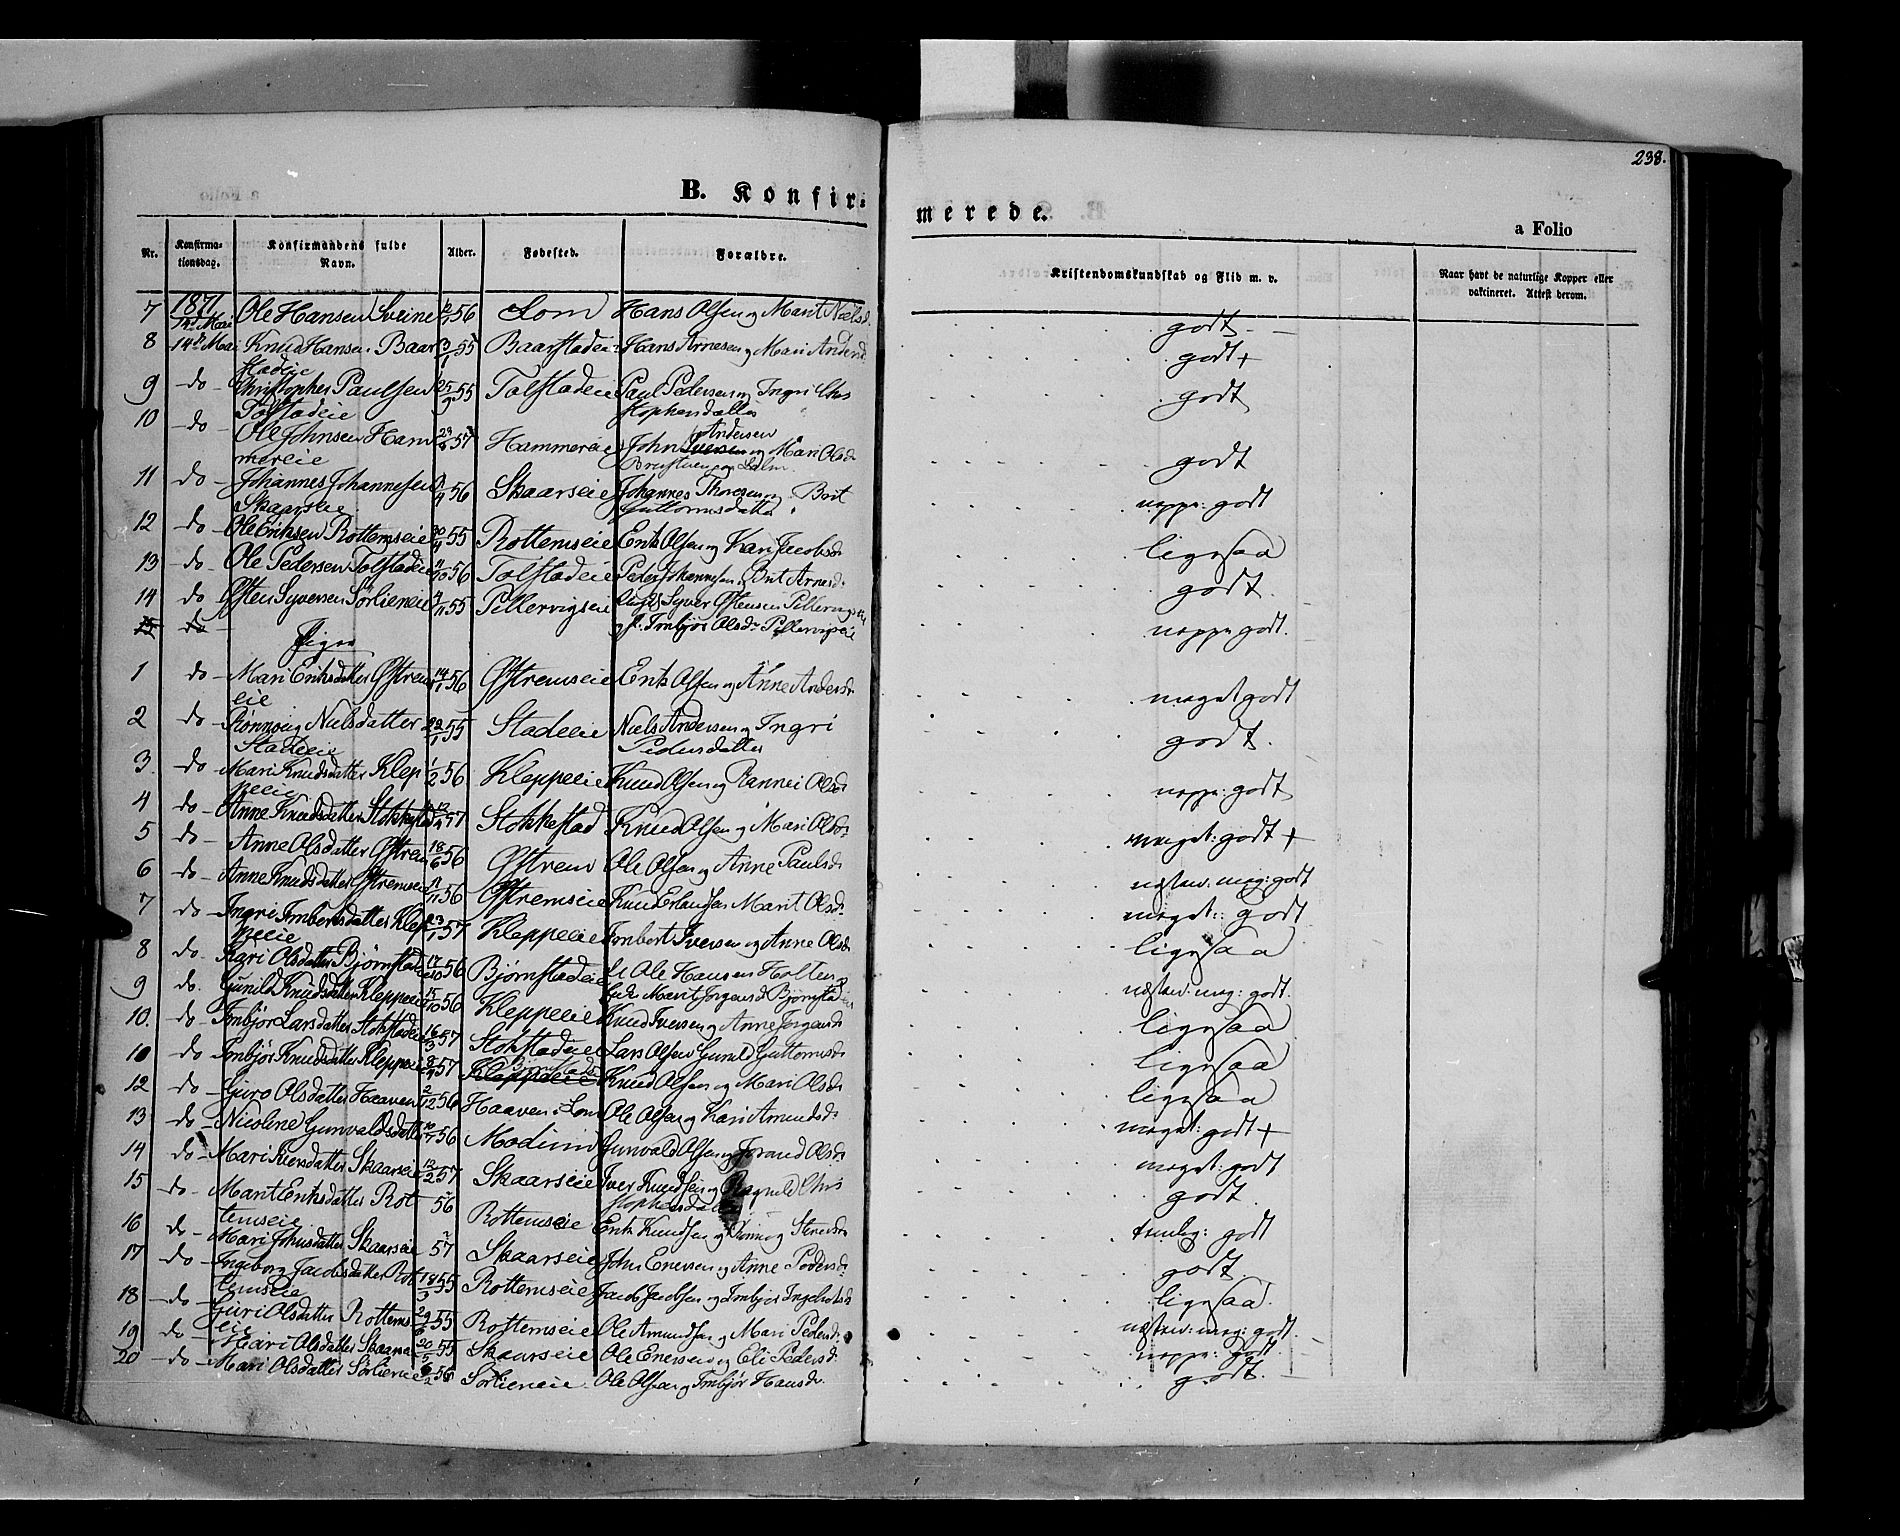 238.
B. Konfir=
merede.
a Folio
Nr. Konfirma-tionsdag. Konfirmandens fulde Navn. Alder. Fødested. Forældre. Kristendomskundskab og Flid m. v. Naar havt de naturlige Kopper eller vaktineret. Attest derom.
7 1871 14de Mai Ole Hansen Sveine 56 Lom Hans Olsen og Marit Nielsd. godt
8 14de Mai Knud Hansen Baar 3/1 55 Baarstadeie Hans Arnesen og Mari Andersd. godt+
stadeie
9 do Christopher Paulsen 25/9 55 Tolstadeie Paul Pedersen og Ingri Chri godt
Tolstadeie stophersdatter
10 do Andersen
Ole Johnsen Ham 57 Hammereie John Iversen og Mari Olsd. godt
mereie
11 do Johannes Johannesen 56 Skaarseie Johannes Thoresen og Brit noppe: godt
Skaarseie Guttormsdatter
12 do Ole Eriksen Rottemseie 30/4 55 Rottemseie Erik Olsen og Kari Jacobsd. ligesaa
13 do Ole Pedersen Tolstadeie 56 Tolstadeie Peder Johannesen og Brit Arnesd. godt.
14 do Østen Syversen Sørlieneie 4/11 55 Pillervigseie Syver Østensen noppe godt.
15 do Imbjør Olsdr Pillervigseie
Piger
1 do Mari Eriksdatter Øftrem 14/1 56 Øftremseie Erik Olsen og Anne Andersdr. meget godt
eie
2 do Rønnoug Nielsdatter 22/1 55 Stadeeie Niels Andersen og Ingri godt.
Stadeeie Pedersdatter
3. do Mari Knudsdatter Klep 1/2 56 Kleppeeie Knud Olsen og Rannei Olsdr noppe: godt
peeie
4 do Anne Knudsdatter Stokkestad 57 Stokkestad Knud Olsen og Mari Olsdr. meget: godt +
5 do Anne Olsdatter Øftrem 18/6 56 Øftrem Ole Olsen og Anne Paulsdr næsten: meg: godt
6 do Anne Knudsdatter Øftremseie 56 Øftremseie Knud Erlandsen Marit Olsdr. meget: godt
7 do Ingri Imbertsdatter Klep 23/1 57 Kleppeeie Imbert Iversen og Anne Olsdr ligesaa
peeie
8 do Kari Olsdatter Bjørnstad 17/10 56 Bjørnstadeie Ole Hansen Holten og næsten: meg: godt.
Marit Jørgensd. Bjørnstadeie
9 do. Gunild Knudsdatter Kleppeeie 15/10 56 Kleppeeie Knud Iversen og Anne Jørgensdr ligesaa
10. do Imbjør Larsdatter Stokstadeie 16/3 57 Stokstadeie Lars Olsen Gunild Guttormsdr ligesaa
10 do Imbjør Knudsdatter Kleppeeie 57 Kleppeeie Knud Olsen og Mari Olsdr ligesaa
12 do Guro Olsdatter Haaven 2/12 56 Haaven i Lom Ole Olsen og Kari Amundsdr meget: godt +
13 do Nicoline Gunvaldsdatter 56 Modum Gunvald Olsen og Jorand Olsdr meget: godt
14 do Mari Iversdatter Skaarseie 12/2 57 Skaarseie Iver Knudsen og Ragnild Chri godt
stophersdatter
15 do Marit Eriksdatter Rot 56 Rottemseie Erik Knudsen og temlig: godt
temseie
16 do Mari Johnsdatter Skaarseie 57 Skaarseie John Enersen og Anne Pedersdr. godt.
17 do Ingeborg Jacobsdatter Rot 18/3 55 Rottemseie Jacob Jacobsen og Imbjør Ingebrigtsdr ligesaa.
temseie
18 do Guri Olsdatter Rottems 55 Rottemseie Ole Amundsen og Mari Pedersdr næsten: meg: godt.
eie
19 do Mari Olsdatter Skaars 20/5 55 Skaarseie Ole Enersen og Eli Pedersd. noppe: godt.
20 do Mari Olsdatter Sørlieneie 56 Sørlieneie. Ole Olsen og Imbjør Hansdr. godt.